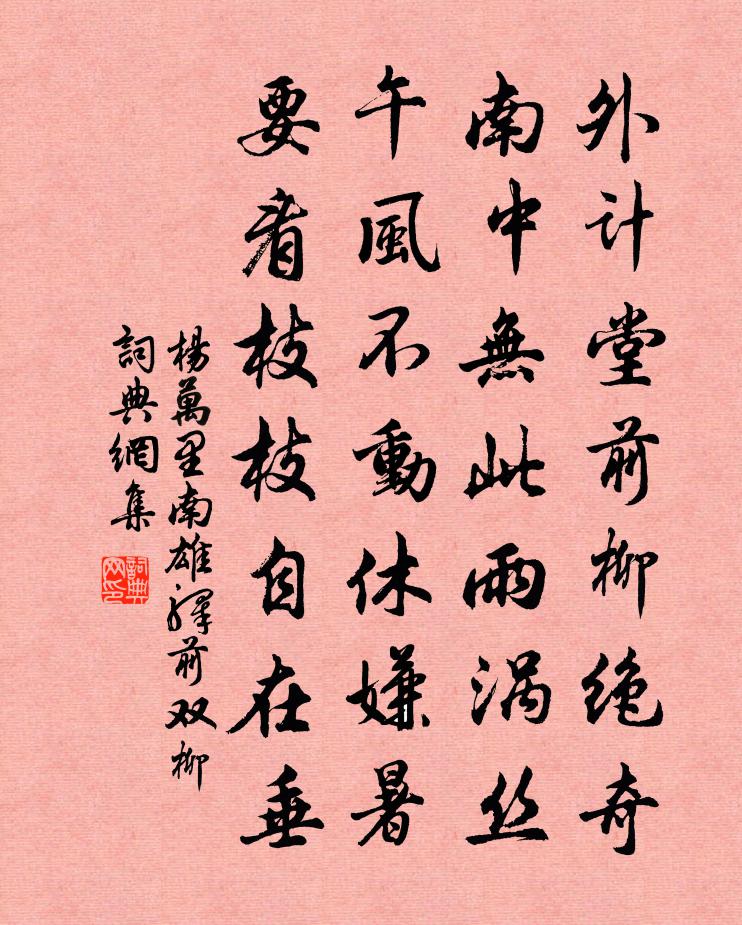 外计堂前柳绝奇
南中無此兩涡丝
午風不動休嫌暑
要看枝枝自在垂
楊萬里南雄驛前双柳
詞典網集
詞典网印